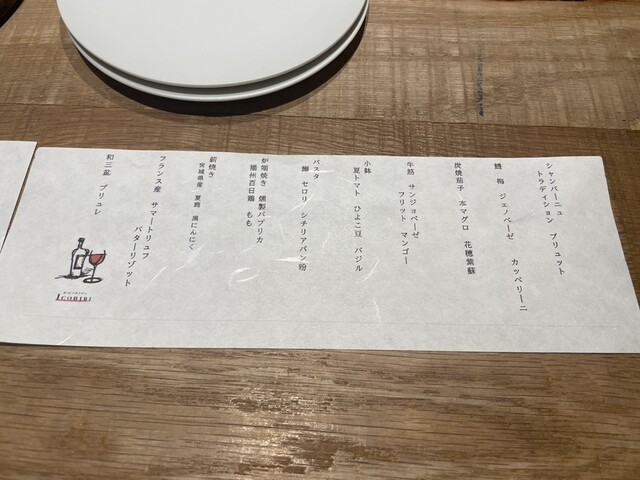 シャンパーニュ
トラディション ブリュット
鱧 梅 ジェノベーゼ カッペリーニ
炭焼茄子 本マグロ 花穂紫蘇
牛筋 サンジョベーゼ
フリット マンゴー
小鉢
夏トマト ひよこ豆 バジル
パスタ
セロリ シチリアパン粉
炉端焼き 燻製パプリカ
播州百日鶏 もも
薪焼き
宮城県産 黒にんにく
フランス産 サマートリュフ
バターリゾット
和三盆 ブリュレ